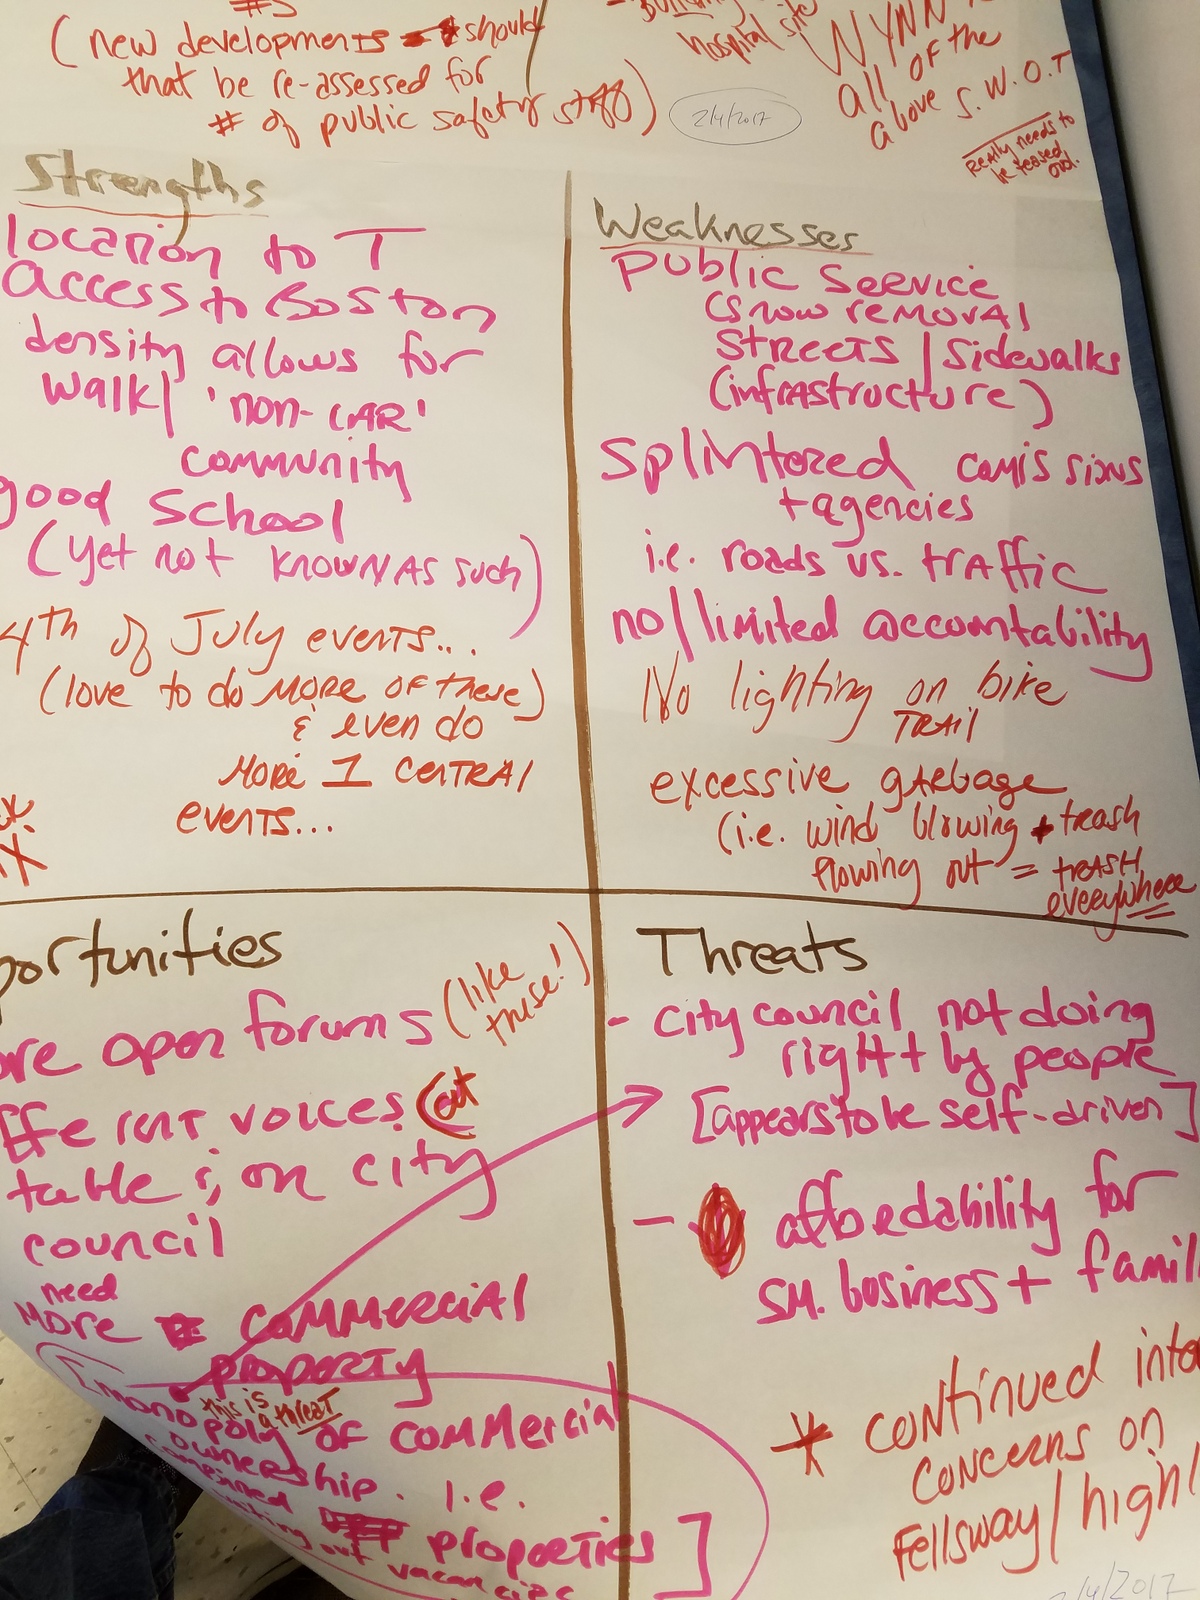 #S
(new developments should
that be re-assessed for
# of public safety staff)
2/4/2017
Building
hospital site
WYNN
all of the
above S.W.O.T
Really needs to
be teased
out.
Strengths
location to T
access to Boston
density allows for
walk/ 'non-CAR'
community
good School
(yet not KNOWN AS such)
4th of July events...
(love to do MORE OF these)
& even do
MORE 1 CENTRAL
events...
Weaknesses
public service
(snow removal
STREETS / Sidewalks
(infrastructure)
Splintered comissions
+ agencies
i.e. roads vs. traffic
no/limited accountability
No lighting on bike
TRAil
excessive garbage
(i.e. wind blowing + trash
flowing out = TRASH
everywhere
portunities
ore open forums (like
these!)
fferent voices (at
table & on city
council
need
More COMMERCIAL
property
this is
a threat
[monopoly of commercial
ownership. i.e.
combined properties]
out vacancies
Threats
- city council not doing
right by people
[appears to be self-driven]
- affordability for
SM. business + famil
* continued into
concerns on
Fellsway/high
2/4/2017